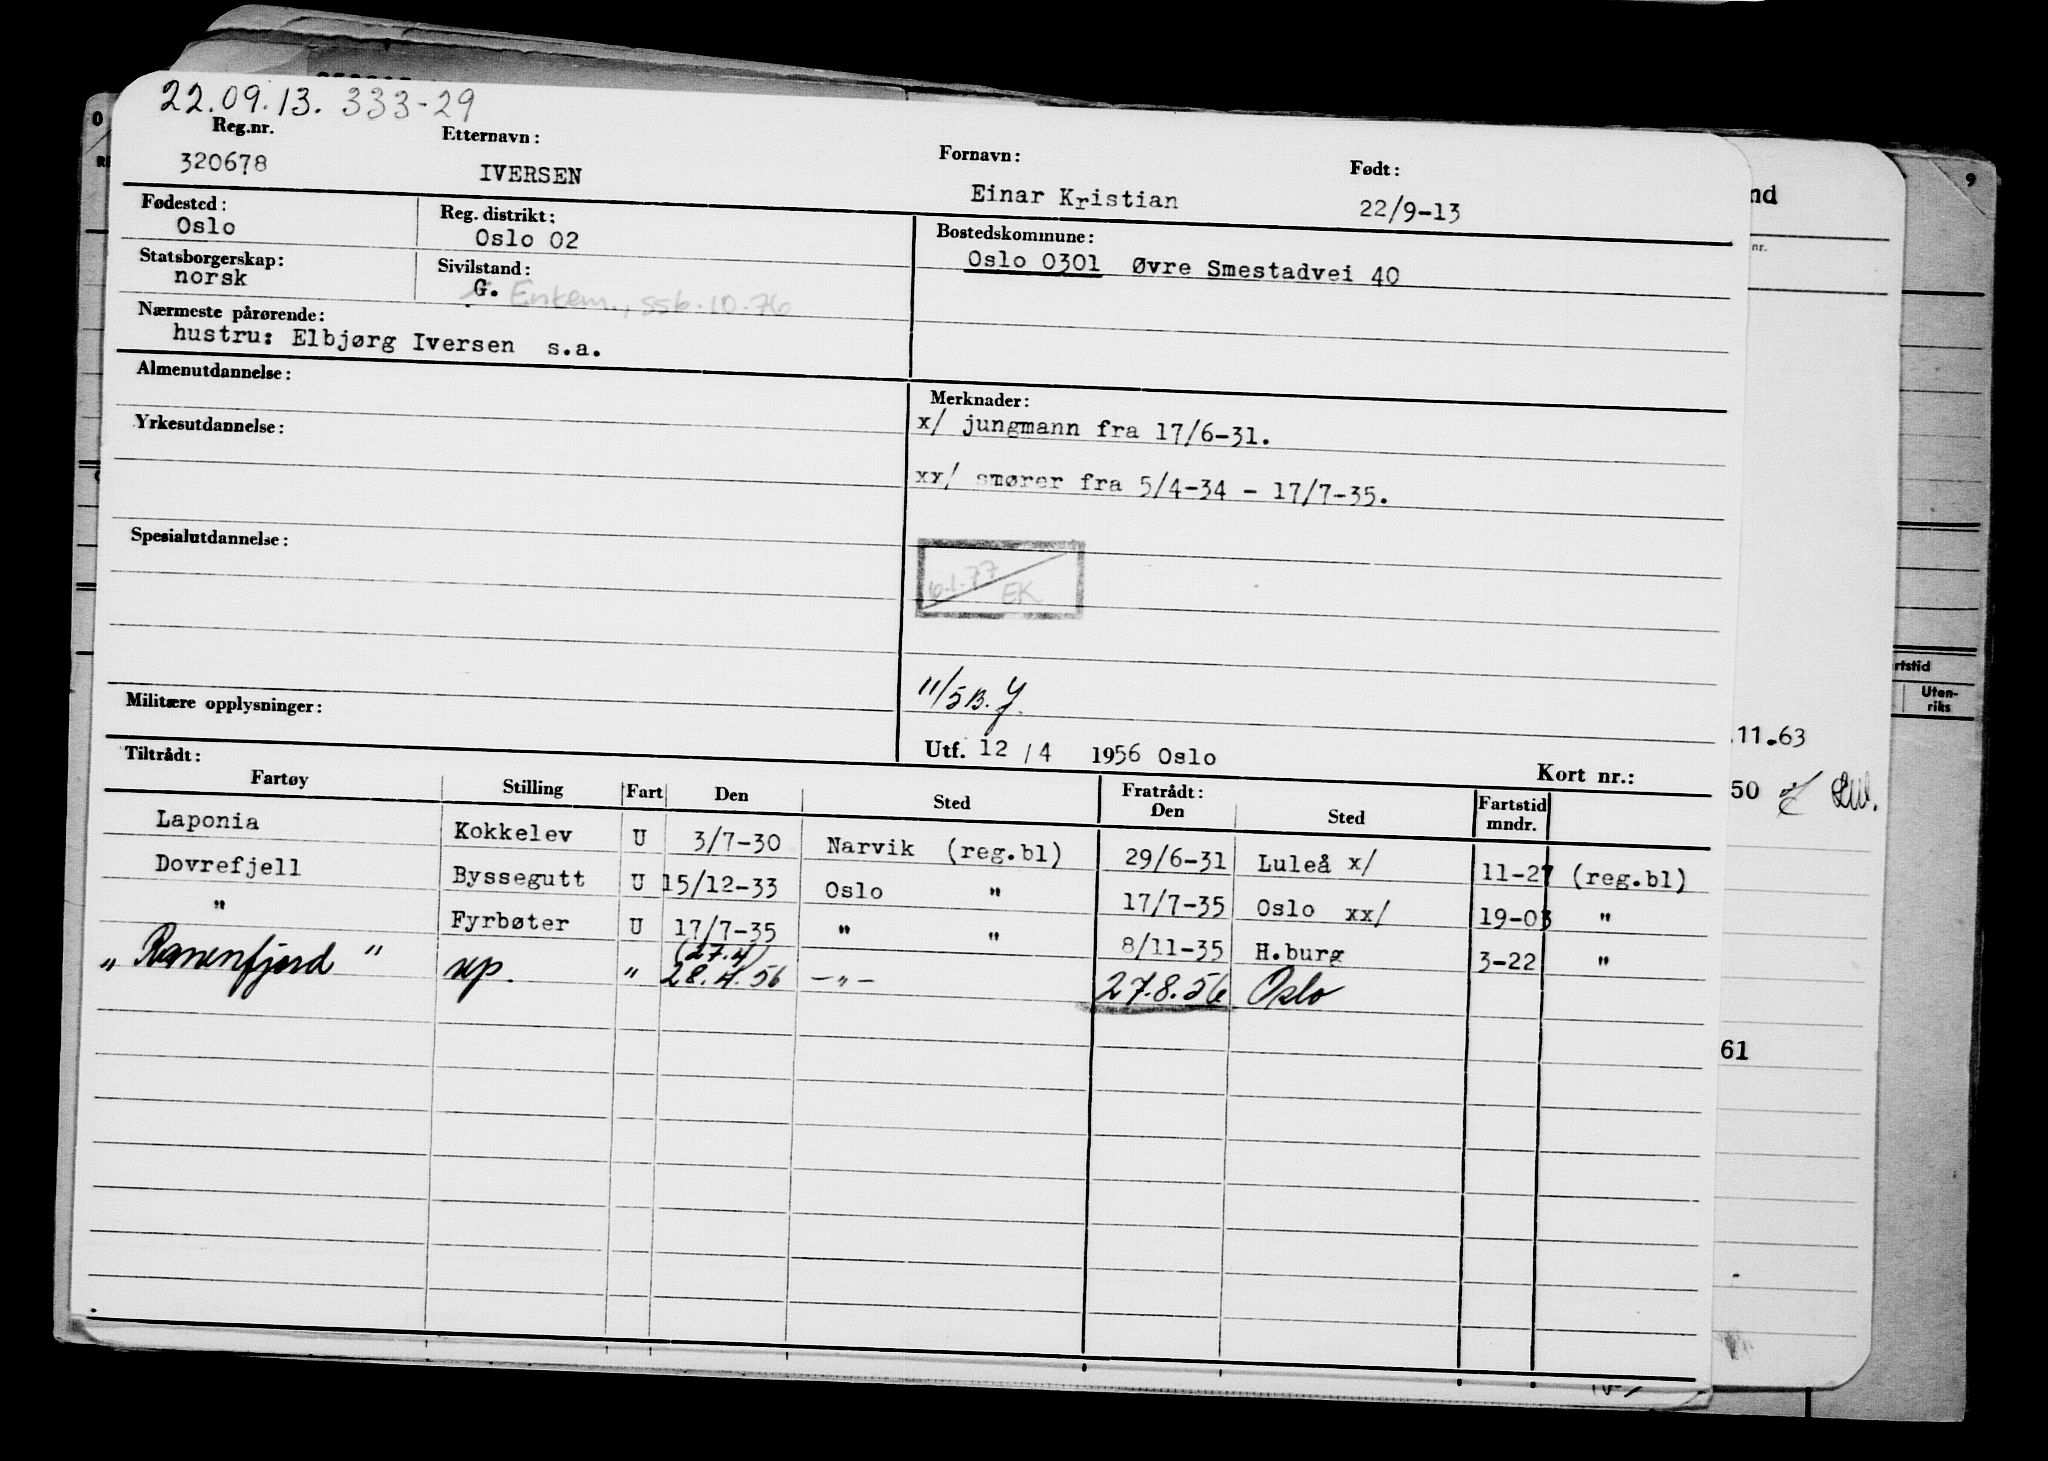 22.09.13. 333-29
Reg.nr. Etternavn: Fornavn: Født:
320678 IVERSEN Einar Kristian 22/9-13
Fødested: Reg. distrikt: Bostedskommune:
Oslo Oslo 02 Oslo 0301 Øvre Smestadvei 40
Statsborgerskap: Sivilstand:
norsk G. Enkem., ssb.10.76
Nærmeste pårørende:
hustru: Elbjørg Iversen s.a.
Almenutdannelse: Merknader:
x/ jungmann fra 17/6-31.
Yrkesutdannelse:
xx/ smører fra 5/4-34 - 17/7-35.
Spesialutdannelse:
6.1.77 EK
11/5 B.J.
Militære opplysninger:
Utf. 12 / 4 1956 Oslo Kort nr.:
Tiltrådt: Fratrådt:
Fartøy Stilling Fart Den Sted Den Sted Fartstid mndr.
Laponia Kokkelev U 3/7-30 Narvik (reg.bl) 29/6-31 Luleå x/ 11-27 (reg.bl)
Dovrefjell Byssegutt U 15/12-33 Oslo " 17/7-35 Oslo xx/ 19-03 "
" Fyrbøter U 17/7-35 " " 8/11-35 H.burg 3-22 "
(27.4)
" Ranenfjord " rep. " 28.4.56 -"- 27.8.56 Oslo
0
9
nd
nr.
rtstid
Uten-
riks
.11.63
50
61